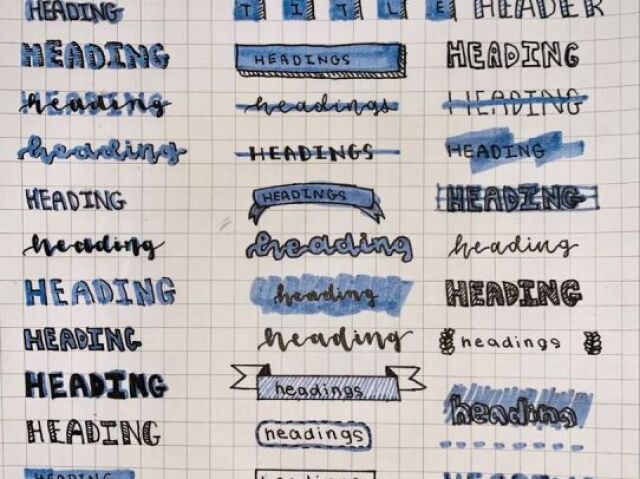 HEADING
HEADING
heading
heading
HEADING
heading
HEADING
HEADING
HEADING
HEADING
HEADING
TITLE
HEADINGS
headings
HEADINGS
HEADINGS
heading
heading
heading
headings
headings
headings
HEADER
HEADING
HEADING
HEADING
HEADING
heading
HEADING
headings
heading